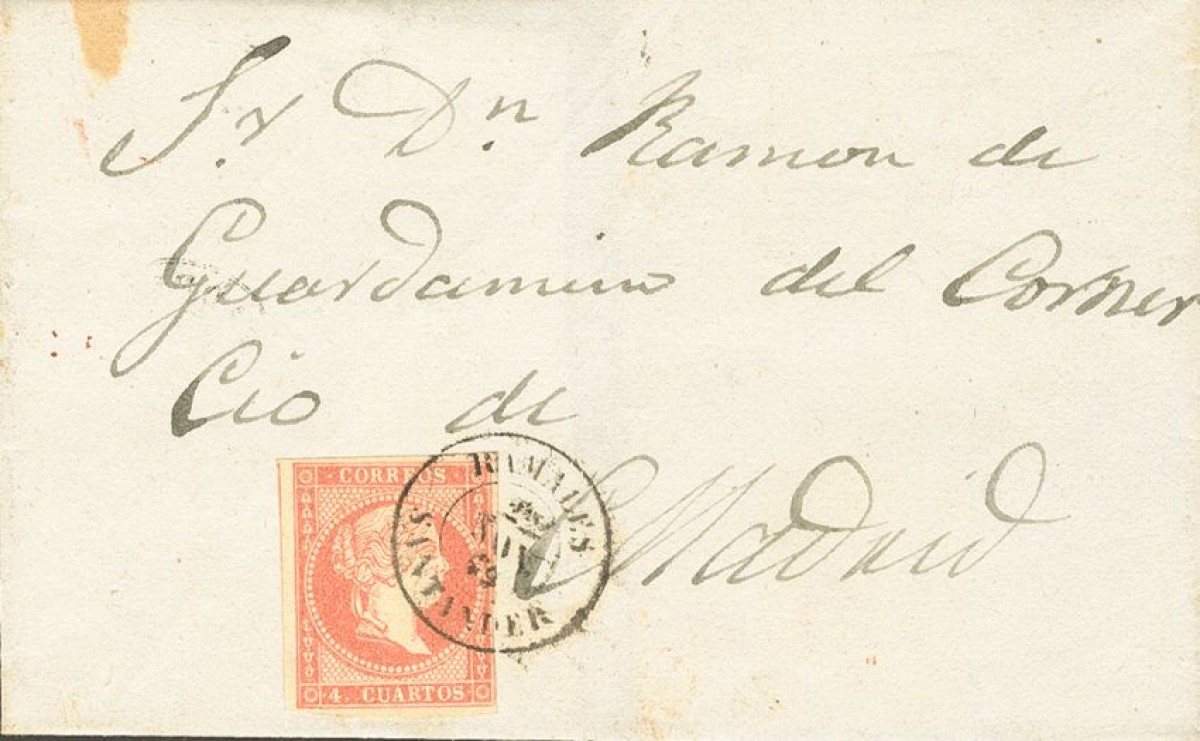 Sr. Dn. Ramon de
Guardamino del Comer
cio de
Madrid
CORREOS
4. CUARTOS
RAMALES
NOV
SANTANDER